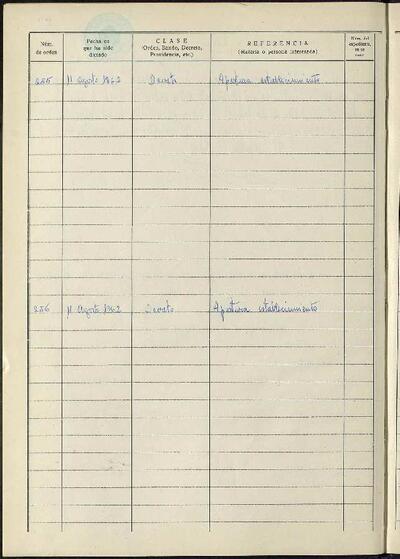 Núm.
de orden
Fecha en
que ha sido
dictado
CLASE
(Orden, Bando, Decreto,
Providencia, etc.)
REFERENCIA
(Materia o persona interesada)
Núm. del
expediente,
en su
caso
255 11 Agosto 1962 Decreto Apertura establecimiento
256 11 Agosto 1962 Decreto Apertura establecimiento